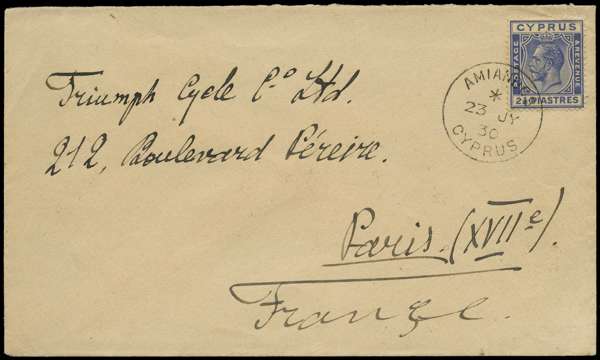 Triumph Cycle Cº Ltd.
212, Boulevard Péreire.
Paris. (XVIIe).
France.
CYPRUS
POSTAGE
REVENUE
2½ PIASTRES
*
23 JY
30
CYPRUS